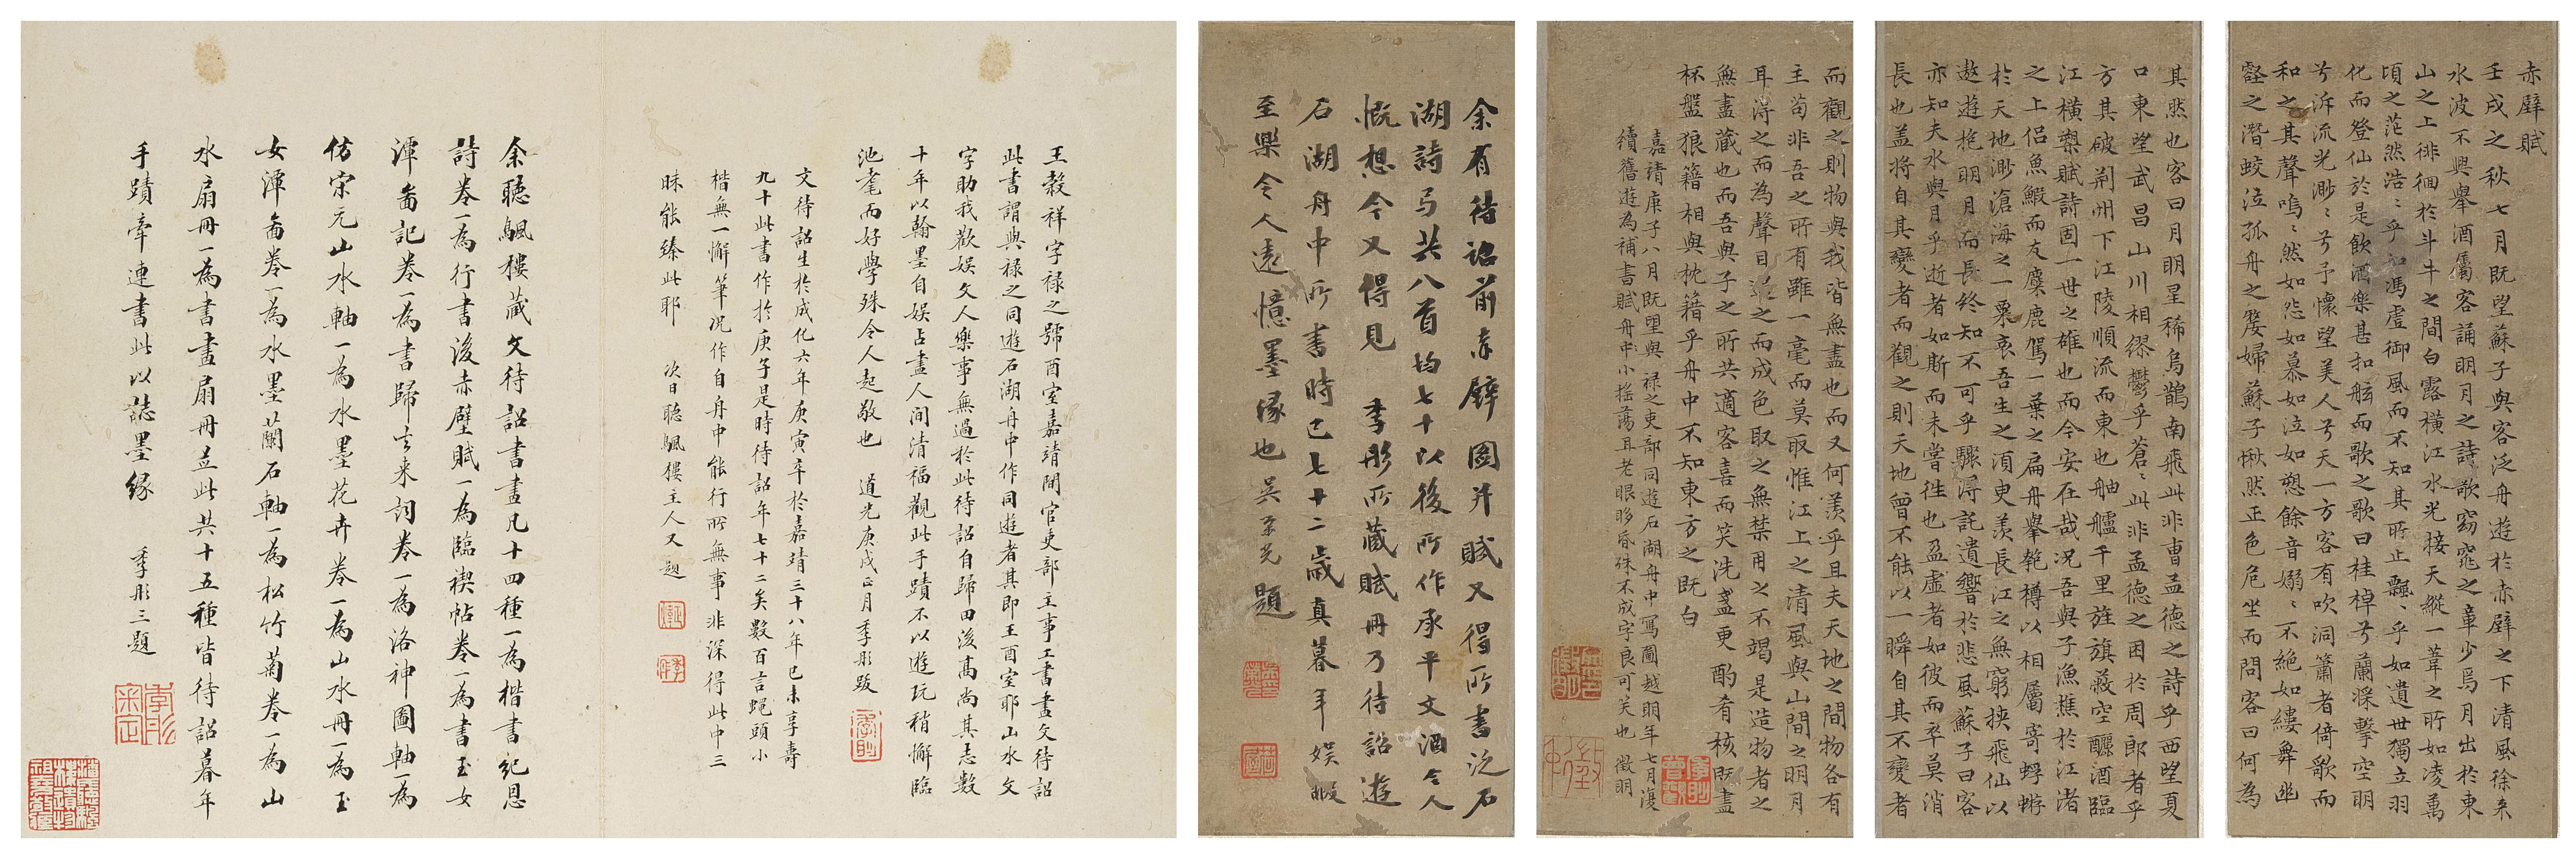 赤壁賦
壬戌之秋七月既望蘇子與客泛舟遊於赤壁之下清風徐來
水波不興舉酒屬客誦明月之詩歌窈窕之章少焉月出於東
山之上徘徊於斗牛之間白露橫江水光接天縱一葦之所如凌萬
頃之茫然浩〻乎如馮虛御風而不知其所止飄〻乎如遺世獨立羽
化而登仙於是飲酒樂甚扣舷而歌之歌曰桂棹兮蘭槳擊空明
兮泝流光渺〻兮予懷望美人兮天一方客有吹洞簫者倚歌而
和之其聲嗚〻然如怨如慕如泣如愬餘音嫋〻不絕如縷舞幽
壑之潛蛟泣孤舟之嫠婦蘇子愀然正色危坐而問客曰何為
其然也客曰月明星稀烏鵲南飛此非曹孟德之詩乎西望夏
口東望武昌山川相繆鬱乎蒼〻此非孟德之困於周郎者乎
方其破荊州下江陵順流而東也舳艫千里旌旗蔽空釃酒臨
江橫槊賦詩固一世之雄也而今安在哉况吾與子漁樵於江渚
之上侶魚鰕而友麋鹿駕一葉之扁舟舉匏樽以相屬寄蜉蝣
於天地渺滄海之一粟哀吾生之須臾羨長江之無窮挾飛仙以
遨遊抱明月而長終知不可乎驟得託遺響於悲風蘇子曰客
亦知夫水與月乎逝者如斯而未嘗往也盈虛者如彼而卒莫消
長也盖將自其變者而觀之則天地曾不能以一瞬自其不變者
而觀之則物與我皆無盡也而又何羨乎且夫天地之間物各有
主苟非吾之所有雖一毫而莫取惟江上之清風與山間之明月
耳得之而為聲目遇之而成色取之無禁用之不竭是造物者之
無盡藏也而吾與子之所共適客喜而笑洗盞更酌肴核既盡
杯盤狼籍相與枕藉乎舟中不知東方之既白
嘉靖庚子八月既望與祿之吏部同遊石湖舟中寫圖越明年七月復
續舊遊為補書賦舟中小搖蕩且老眼眵昏殊不成字良可笑也 徵明
余有待詔前赤壁圖并賦又得所書泛石
湖詩与共八首均七十以後所作承平文酒令人
慨想今又得見 季彤所藏賦冊乃待詔遊
石湖舟中所書時已七十二歲真暮年娛暇
至樂令人遠憶墨緣也吳榮光題
王榖祥字祿之號酉室嘉靖間官吏部主事工書畫文待詔
此書謂與祿之同遊石湖舟中作同遊者其即王酉室耶山水文
字助我歡娛文人樂事無過於此待詔自歸田後高尚其志數
十年以翰墨自娛占盡人間清福觀此手蹟不以遊玩稍懈臨
池耄而好學殊令人起敬也 道光庚戌正月季彤跋
文待詔生於成化六年庚寅卒於嘉靖三十八年己未享壽
九十此書作於庚子是時待詔年七十二矣數百言蝇頭小
楷無一懈筆况作自舟中能行所無事非深得此中三
昧能臻此耶 次日聽颿樓主人又題
余聽颿樓藏文待詔書畫凡十四種一為楷書紀恩
詩卷一為行書後赤壁賦一為臨禊帖卷一為書玉女
潭圖記卷一為書歸去来詞卷一為洛神圖軸一為
仿宋元山水軸一為水墨花卉卷一為山水冊一為玉
女潭圖卷一為水墨蘭石軸一為松竹菊卷一為山
水扇冊一為書畫扇冊并此共十五種皆待詔暮年
手蹟牽連書此以誌墨緣 季彤三題
季彤
審定